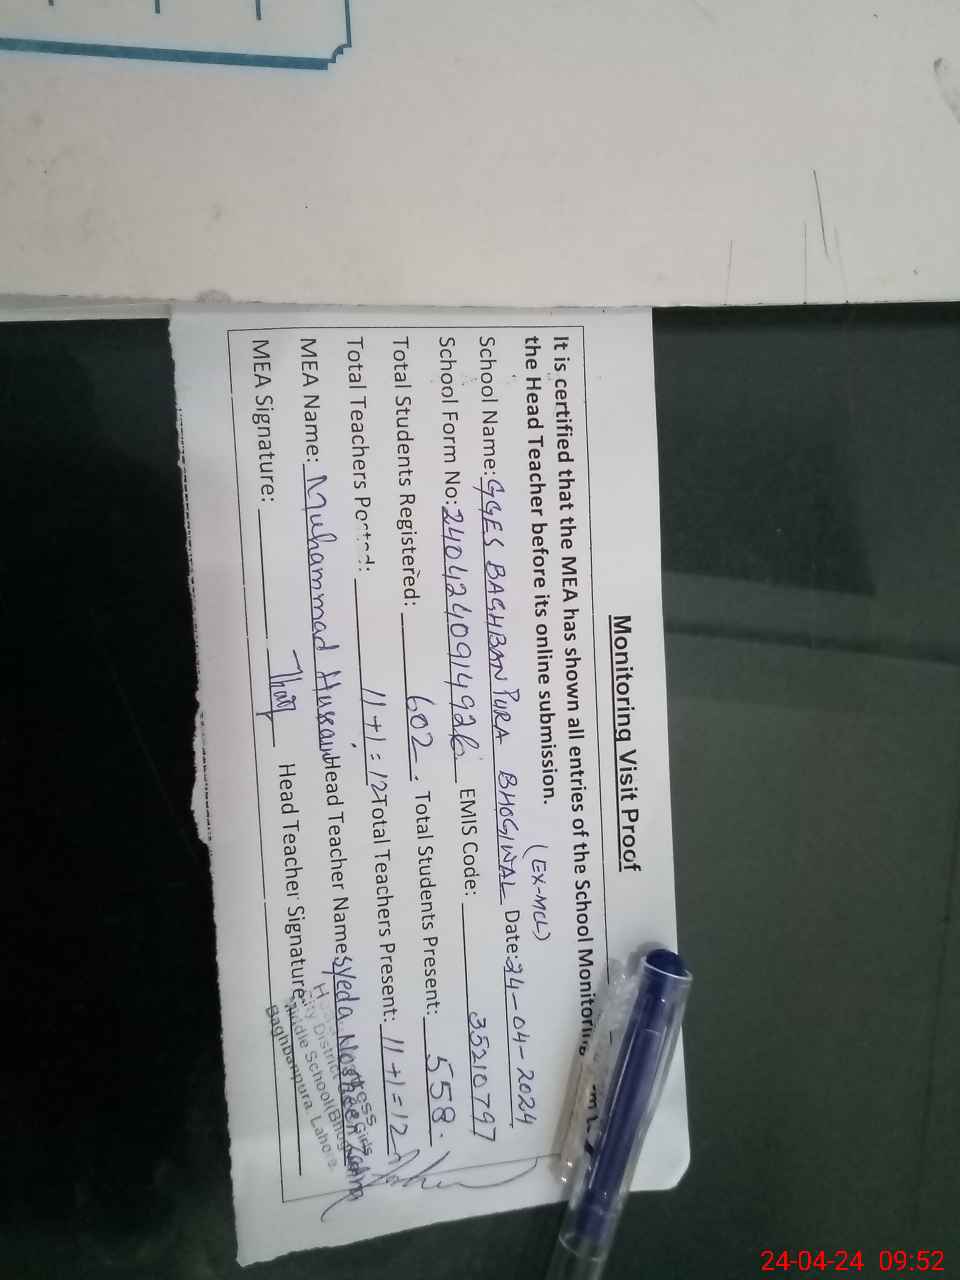 Monitoring Visit Proof
It is certified that the MEA has shown all entries of the School Monitoring
the Head Teacher before its online submission.
(EX-MCL)
School Name: GGES BAGHBANPURA BHOGIWAL Date: 24-04-2024
School Form No: 2404240914926 EMIS Code: 35210797
Total Students Registered: 602. Total Students Present: 558.
Total Teachers Posted: 11+1=12 Total Teachers Present: 11+1=12
MEA Name: Muhammad Hussain Head Teacher Name Syeda
MEA Signature: Head Teacher Signature:
City District Girls
Middle School
Baghbanpura, Lahore
24-04-24 09:52